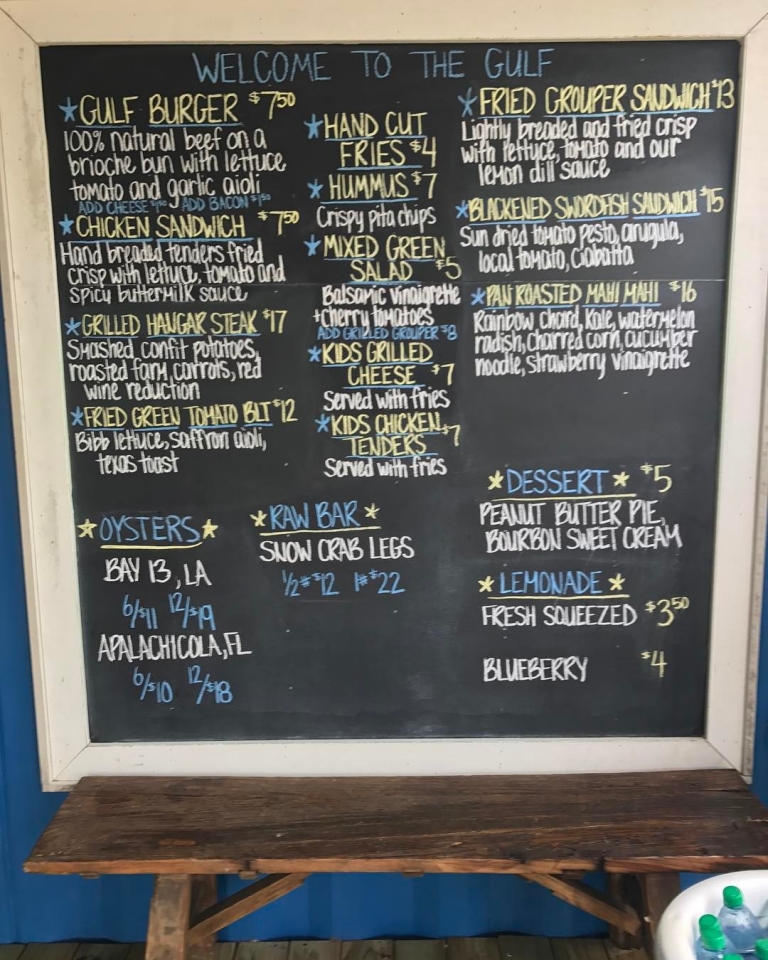 WELCOME TO THE GULF
★GULF BURGER $7.50
100% natural beef on a
brioche bun with lettuce,
tomato and garlic aioli
ADD CHEESE ADD BACON
★CHICKEN SANDWICH $7.50
Hand breaded tenders fried
crisp with lettuce, tomato and
spicy buttermilk sauce
★GRILLED HANGAR STEAK $17
Smashed confit potatoes,
roasted farm carrots, red
wine reduction
★FRIED GREEN TOMATO BLT $12
Bibb lettuce, saffron aioli,
texas toast
★HAND CUT
FRIES $4
★HUMMUS $7
Crispy pita chips
★MIXED GREEN
SALAD $5
Balsamic vinaigrette
+cherry tomatoes
ADD GRILLED GROUPER $8
★KIDS GRILLED
CHEESE $7
Served with fries
★KIDS CHICKEN
TENDERS $7
Served with fries
★FRIED GROUPER SANDWICH $13
Lightly breaded and fried crisp
with lettuce, tomato and our
lemon dill sauce
★BLACKENED SWORDFISH SANDWICH $15
Sun dried tomato pesto, arugula,
local tomato, ciabatta
★PAN ROASTED MAHI MAHI $16
Rainbow chard, kale, watermelon
radish, charred corn, cucumber
noodle, strawberry vinaigrette
★OYSTERS★
BAY 13, LA
6/$11 12/$19
APALACHICOLA, FL
6/$10 12/$18
★RAW BAR★
SNOW CRAB LEGS
1/2# $12 1# $22
★DESSERT★ $5
PEANUT BUTTER PIE,
BOURBON SWEET CREAM
★LEMONADE★
FRESH SQUEEZED $3.50
BLUEBERRY $4